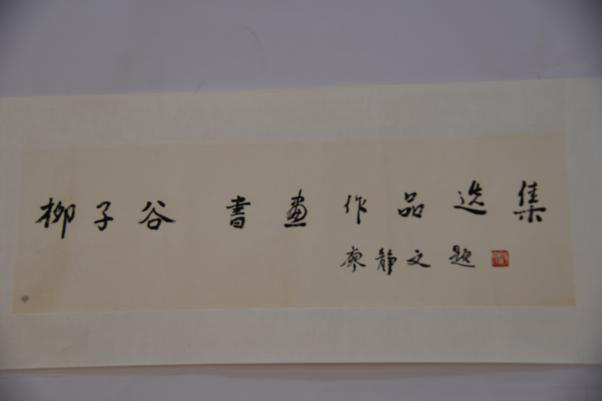 柳子谷 書畫作品选集
廖静文 题